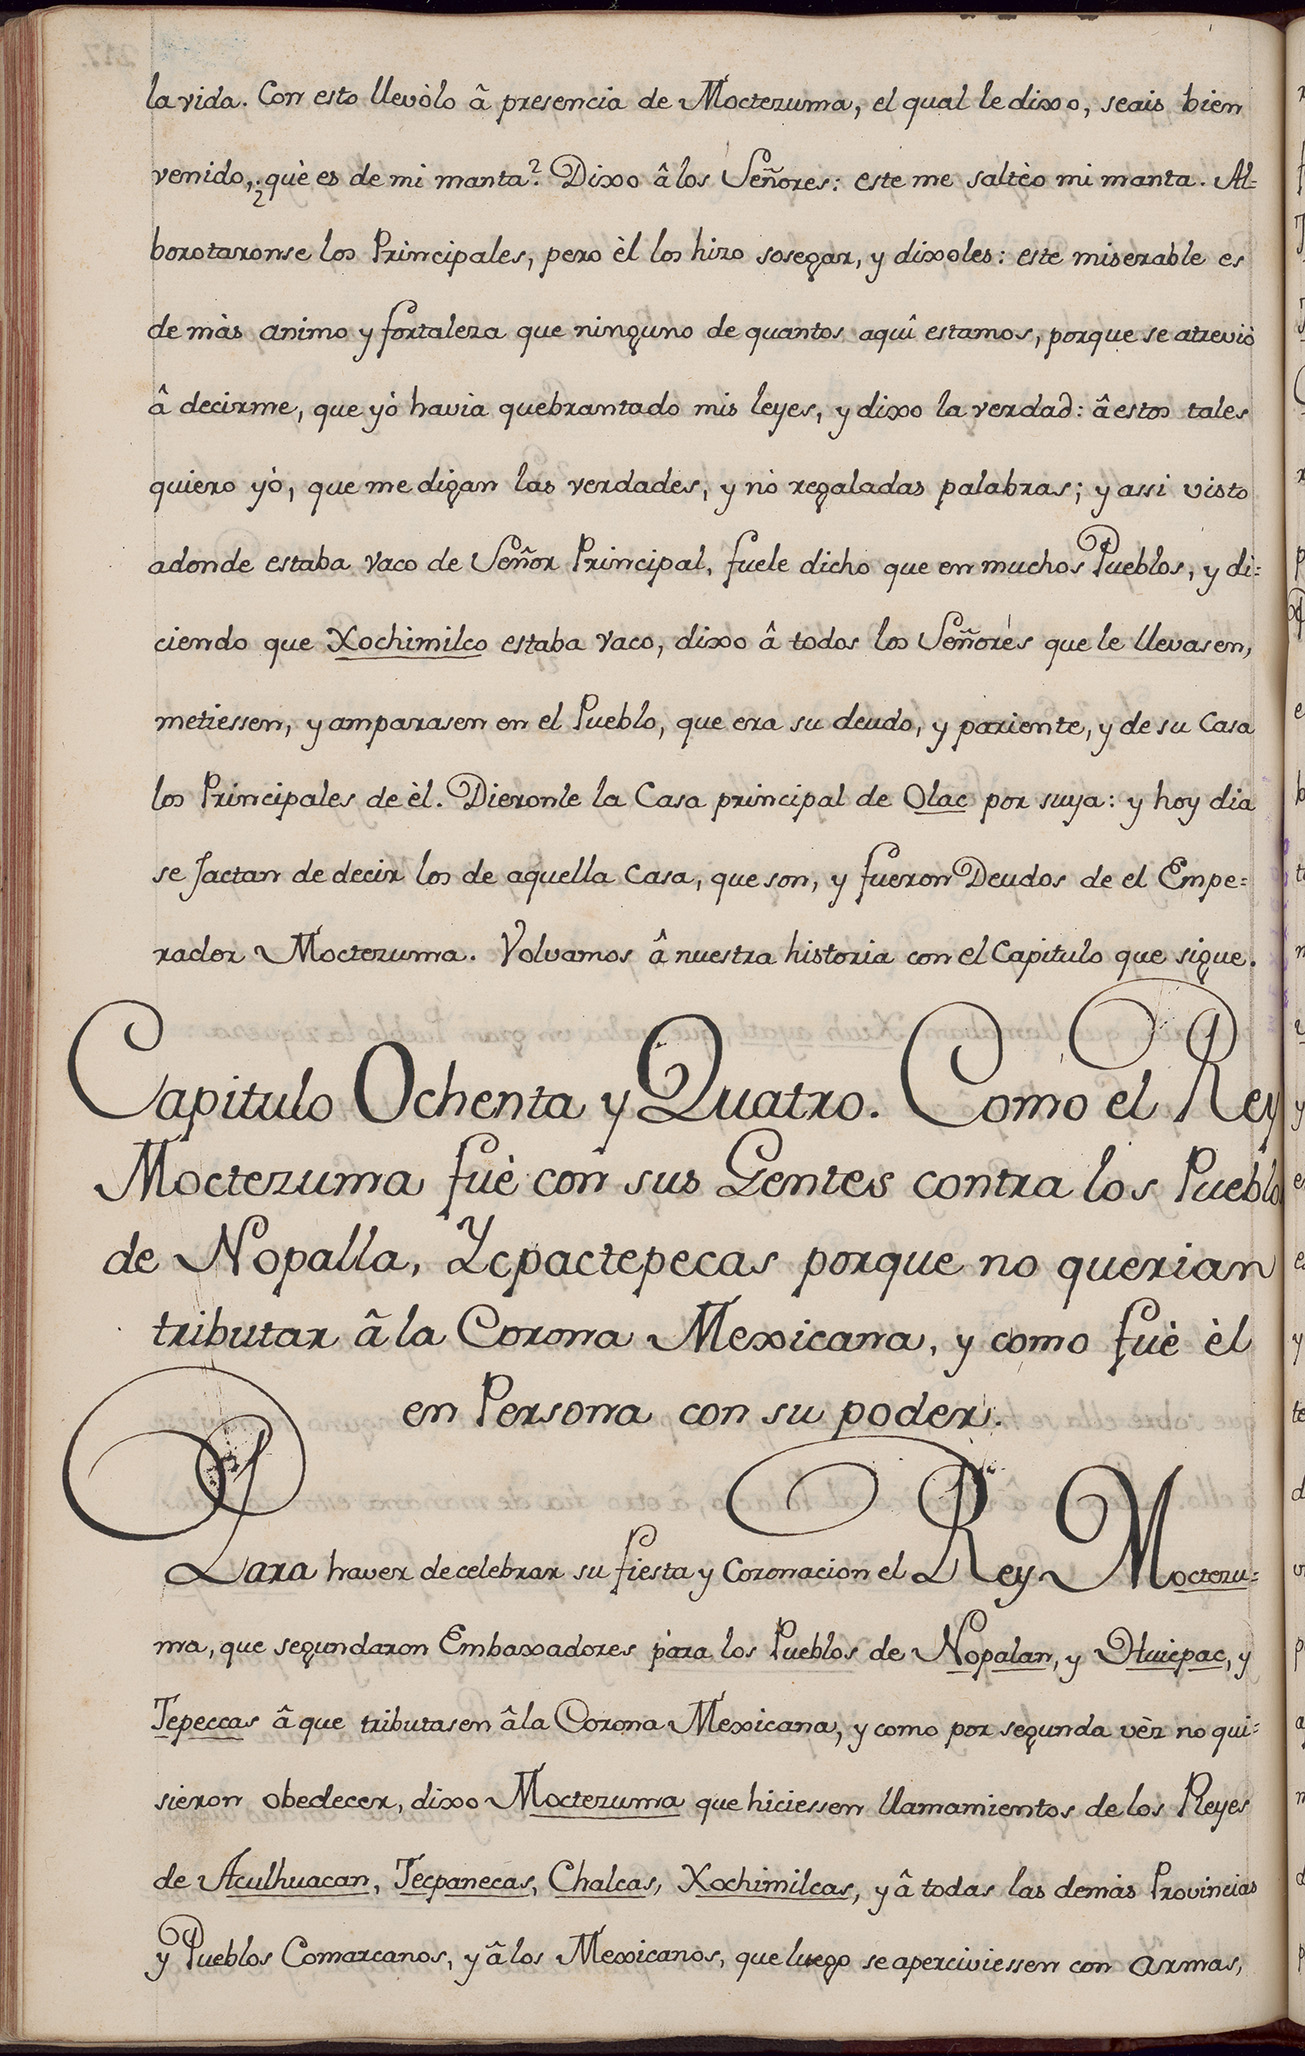 la vida. Con esto llevòlo â presencia de Moctezuma, el qual le dixo, seais bien
venido, ¿què es de mi manta? Dixo â los Señores: este me saltèo mi manta. Al=
borotaronse los Principales, pero èl los hizo sosegar, y dixoles: este miserable es
de màs animo y fortaleza que ninguno de quantos aquì estamos, porque se atreviò
â decirme, que yò havia quebrantado mis leyes, y dixo la verdad: â estos tales
quiero yò, que me digan las verdades, y nò regaladas palabras; y assi visto
adonde estaba vaco de Señor Principal, fuele dicho que en muchos Pueblos, y di=
ciendo que Xochimilco estaba vaco, dixo â todos los Señores que le llevasen,
metiessen, y amparasen en el Pueblo, que era su deudo, y pariente, y de su Casa
los Principales de èl. Dieronle la Casa principal de Olac por suya: y hoy dia
se Jactan de decir los de aquella Casa, que son, y fueron Deudos de el Empe=
rador Moctezuma. Volvamos â nuestra historia con el Capitulo que sigue.
Capitulo Ochenta y Quatro. Como el Rey
Moctezuma fuè con sus Gentes contra los Pueblos
de Nopalla, Ycpactepecas porque no querian
tributar â la Corona Mexicana, y como fuè èl
en Persona con su poder.
Para haver de celebrar su fiesta y Coronacion el Rey Moctezu=
ma, que segundaron Embaxadores para los Pueblos de Nopalan, y Huicpac, y
Tepeccas â que tributasen â la Corona Mexicana, y como por segunda vèz no qui=
sieron obedecer, dixo Moctezuma que hiciessen llamamientos de los Reyes
de Aculhuacan, Tecpanecas, Chalcas, Xochimilcas, y â todas las demàs Provincias
y Pueblos Comarcanos, y â los Mexicanos, que luego se aperciviessen con armas,